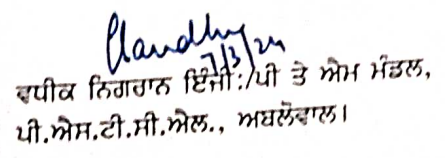 Chaudhry
7/3/24
ਵਧੀਕ ਨਿਗਰਾਨ ਇੰਜੀ:/ਪੀ ਤੇ ਐਮ ਮੰਡਲ,
ਪੀ.ਐਸ.ਟੀ.ਸੀ.ਐਲ., ਅਬਲੋਵਾਲ।